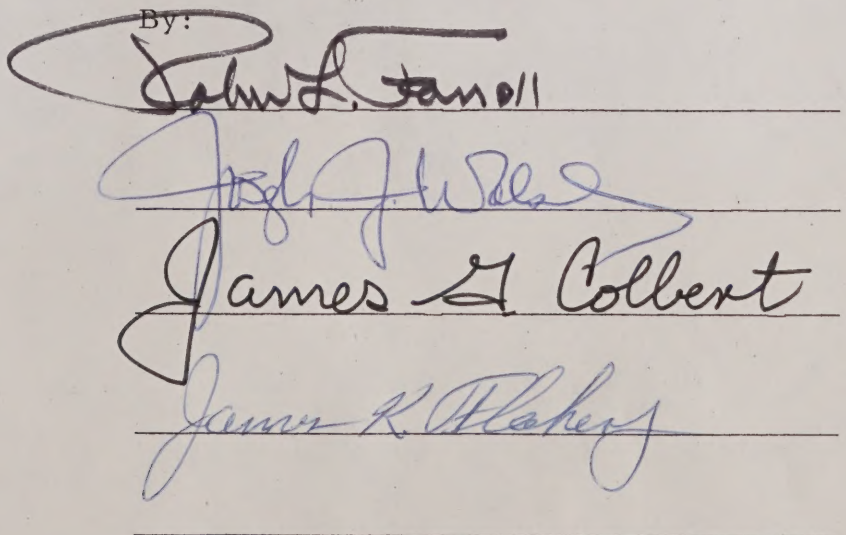 By:
Robert L. Farrell
Joseph J. Walsh
James G Colbert
James K. Flaherty